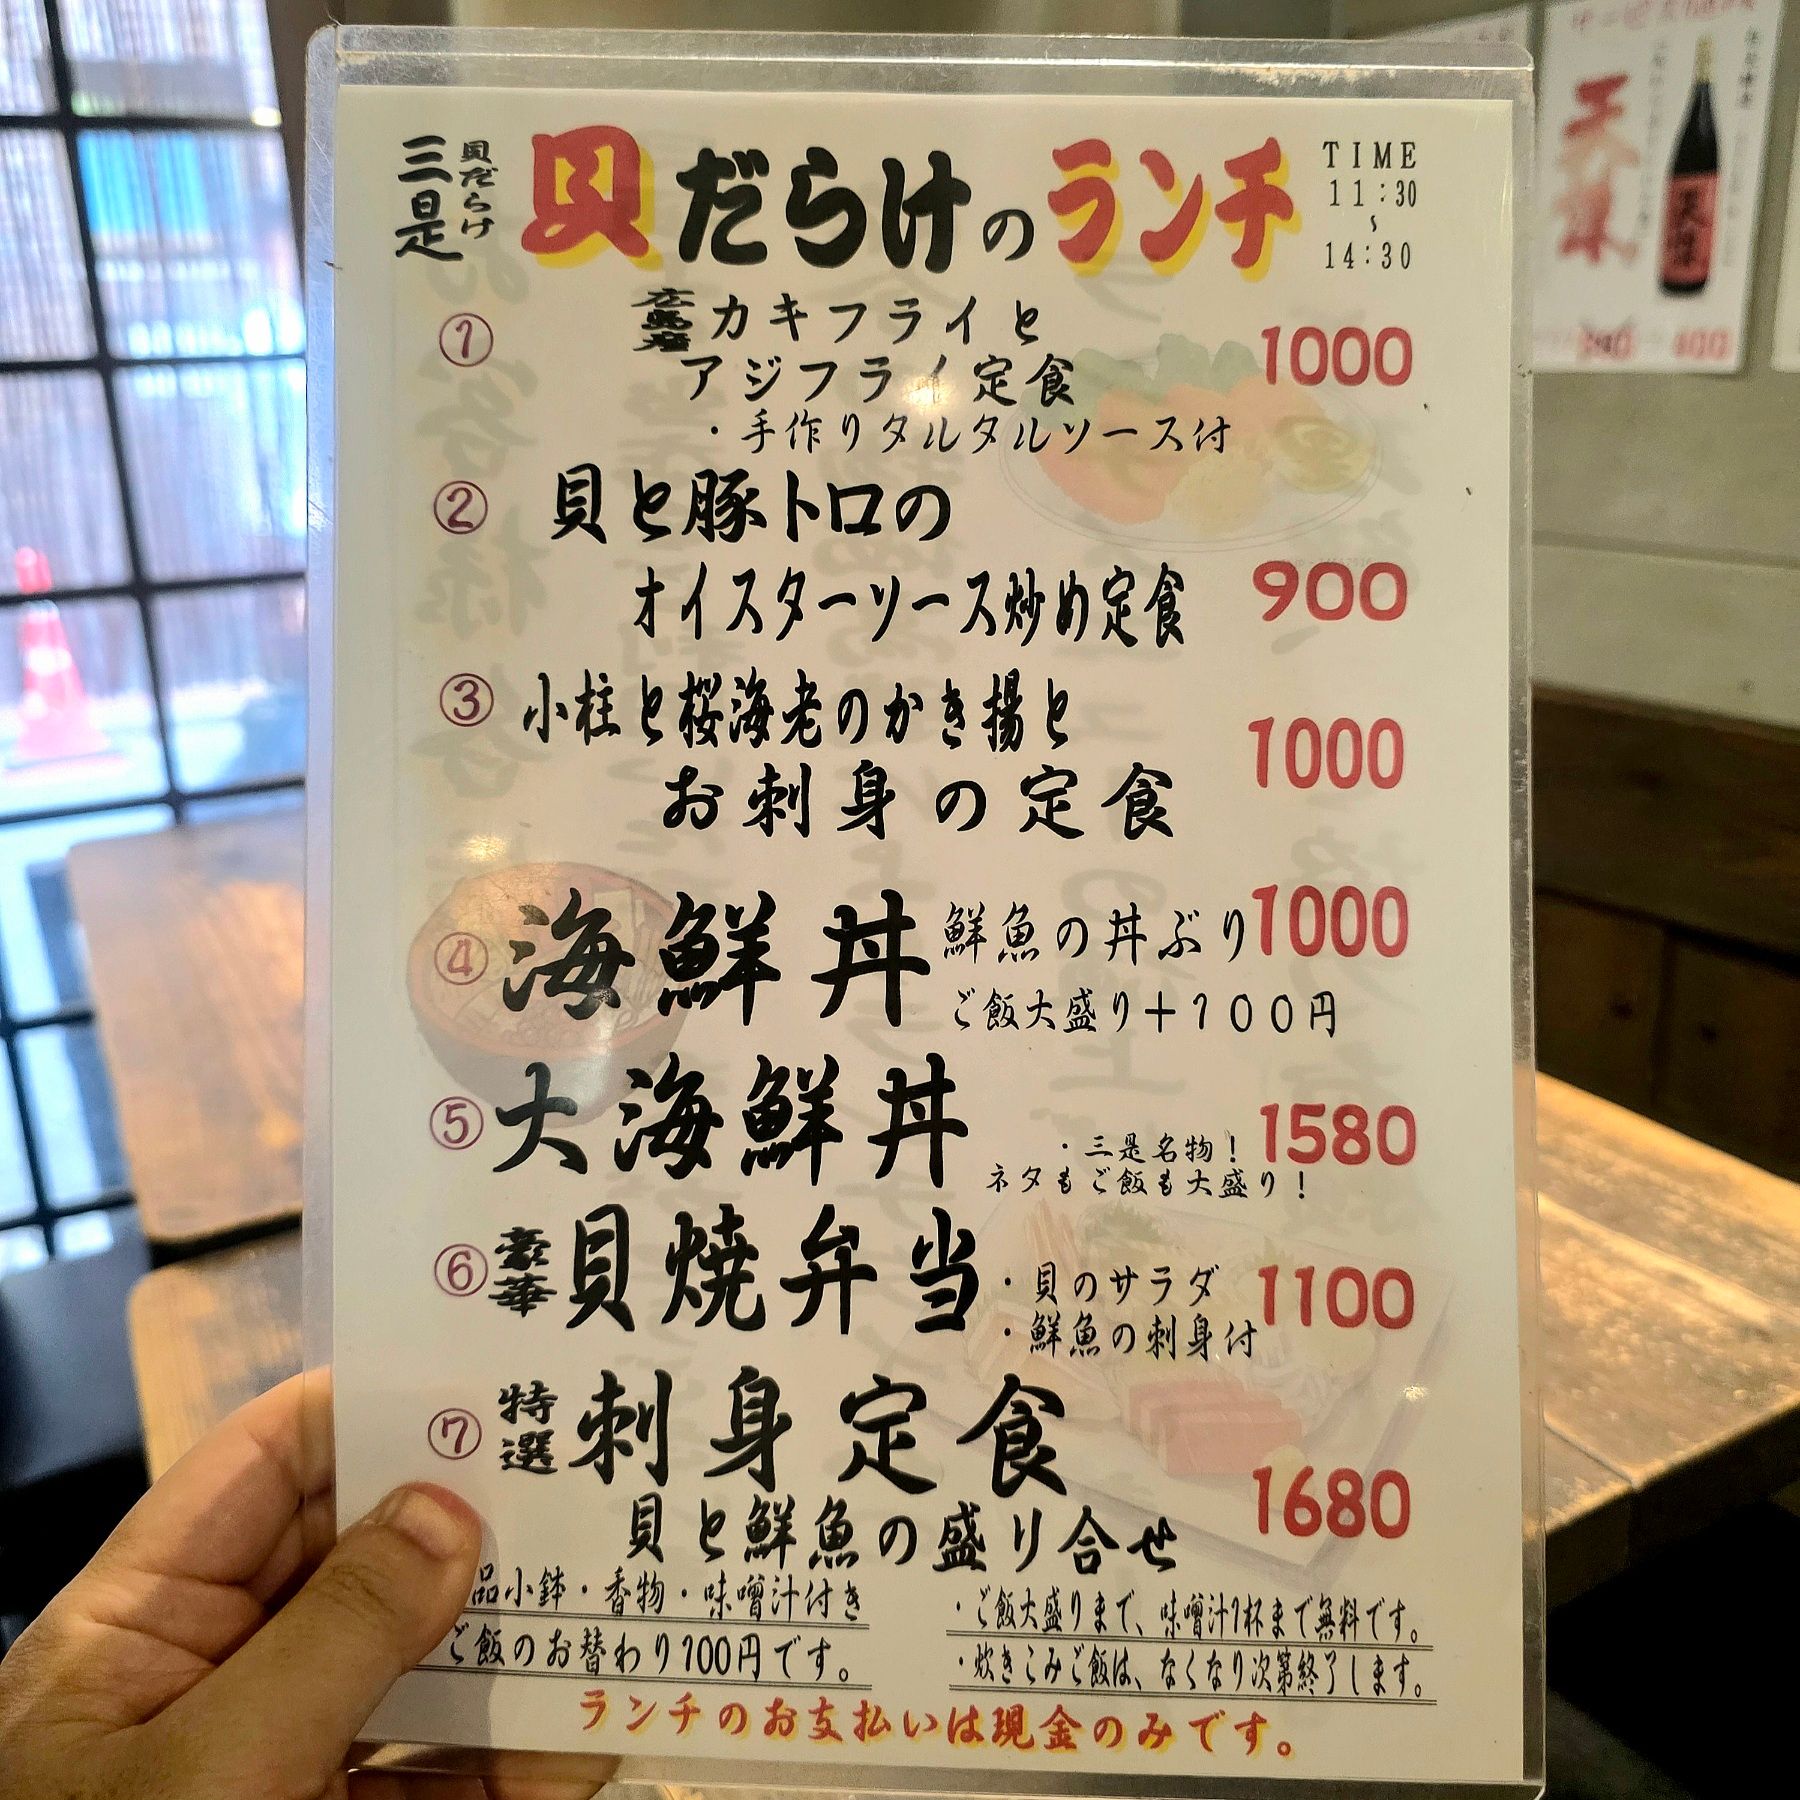 貝だらけ
三是
貝だらけのランチ
TIME
11:30
~
14:30
① 広島産 カキフライと
アジフライ定食
1000
・手作りタルタルソース付
② 貝と豚トロの
オイスターソース炒め定食
900
③ 小柱と桜海老のかき揚と
お刺身の定食
1000
④ 海鮮丼 鮮魚の丼ぶり 1000
ご飯大盛り+100円
⑤ 大海鮮丼 1580
・三是名物!
ネタもご飯も大盛り!
⑥ 豪華 貝焼弁当 1100
・貝のサラダ
・鮮魚の刺身付
⑦ 特選 刺身定食
1680
貝と鮮魚の盛り合せ
品小鉢・香物・味噌汁付き
ご飯のお替わり100円です。
・ご飯大盛りまで、味噌汁1杯まで無料です。
・炊きこみご飯は、なくなり次第終了します。
ランチのお支払いは現金のみです。